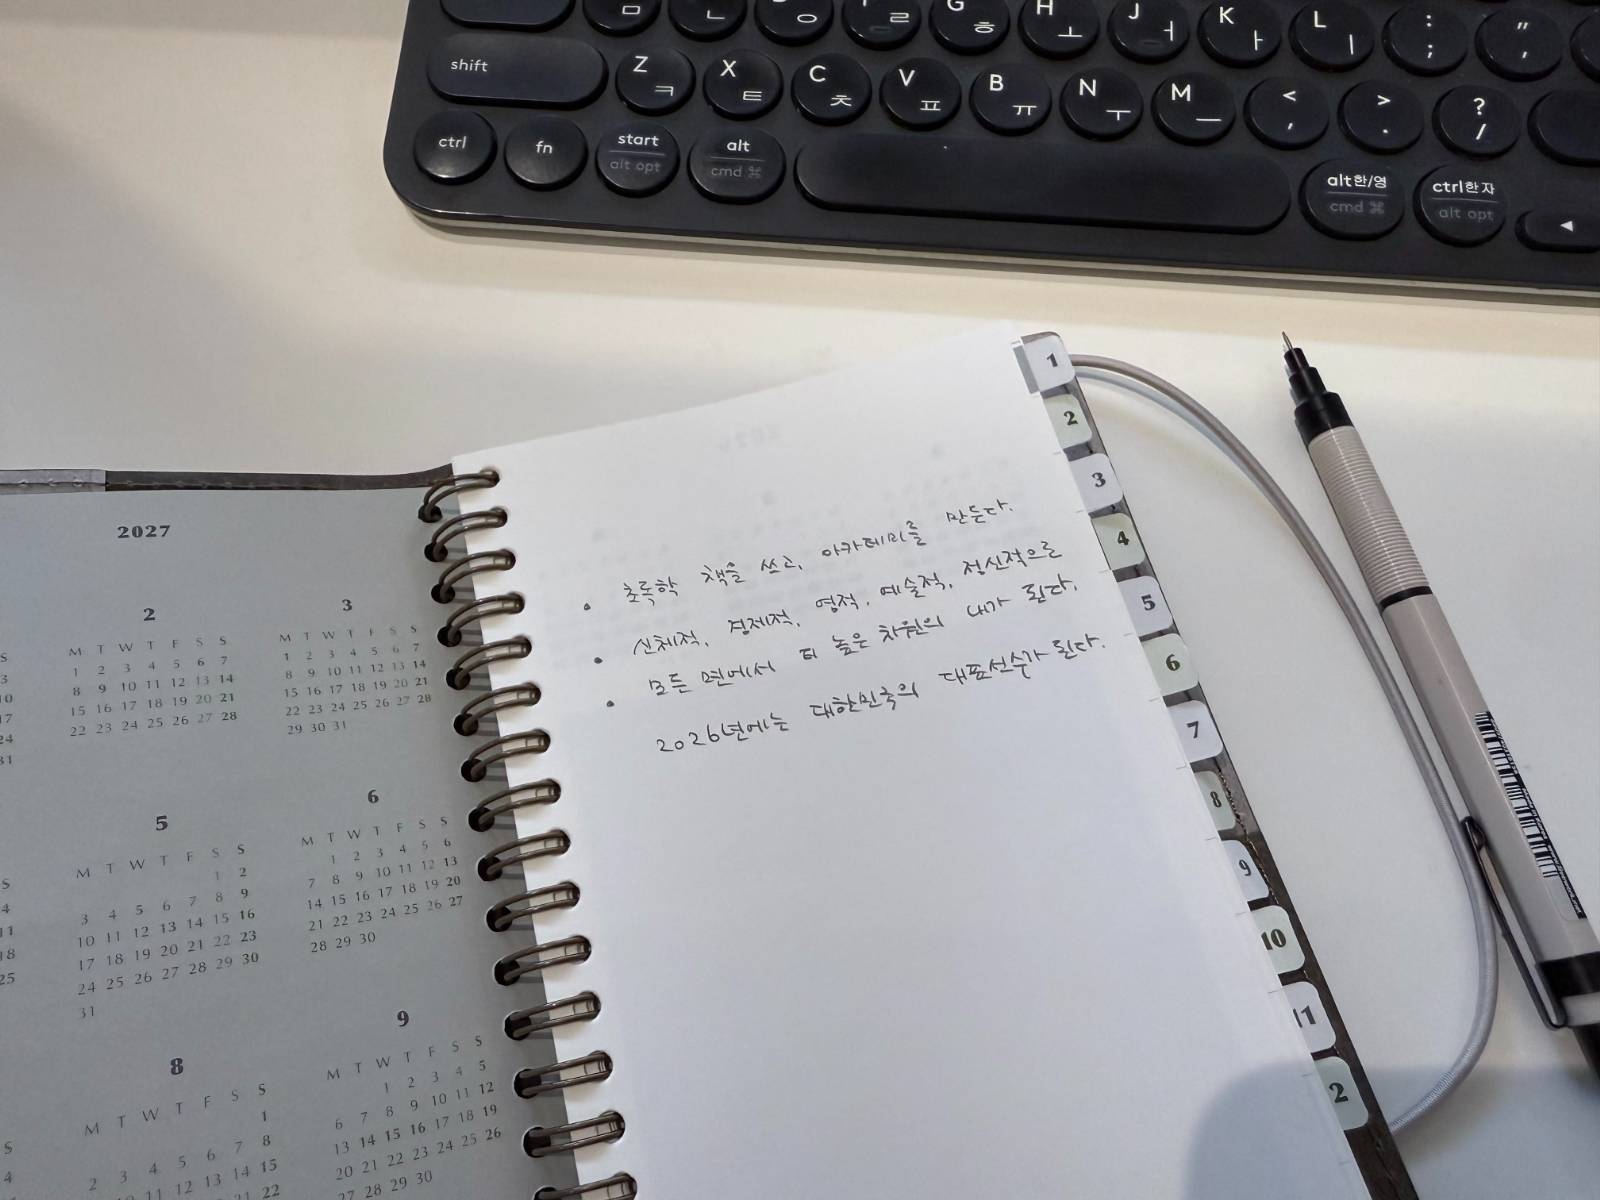 ㅁ ㄴ ㅇ ㄹ G ㅎ H ㅗ J ㅓ K ㅏ L ㅣ : ; " '
shift Z ㅋ X ㅌ C ㅊ V ㅍ B ㅠ N ㅜ M ㅡ < , > . ? /
ctrl fn start alt opt alt cmd ⌘ alt한/영 cmd ⌘ ctrl한자 alt opt ◀
1
2
3
4
5
6
7
8
9
10
11
2
• 초독학 책을 쓰고, 아카데미를 만든다.
• 신체적, 경제적, 영적, 예술적, 정신적으로
모든 면에서 더 높은 차원의 내가 된다.
• 2026년에는 대한민국의 대표선수가 된다.
2027
2
M T W T F S S
1 2 3 4 5 6 7
8 9 10 11 12 13 14
15 16 17 18 19 20 21
22 23 24 25 26 27 28
3
M T W T F S S
1 2 3 4 5 6 7
8 9 10 11 12 13 14
15 16 17 18 19 20 21
22 23 24 25 26 27 28
29 30 31
5
M T W T F S S
1 2
3 4 5 6 7 8 9
10 11 12 13 14 15 16
17 18 19 20 21 22 23
24 25 26 27 28 29 30
31
6
M T W T F S S
1 2 3 4 5 6
7 8 9 10 11 12 13
14 15 16 17 18 19 20
21 22 23 24 25 26 27
28 29 30
8
M T W T F S S
1
2 3 4 5 6 7 8
10 11 12 13 14 15
21 22
9
M T W T F S S
1 2 3 4 5
6 7 8 9 10 11 12
13 14 15 16 17 18 19
20 21 22 23 24 25 26
27 28 29 30